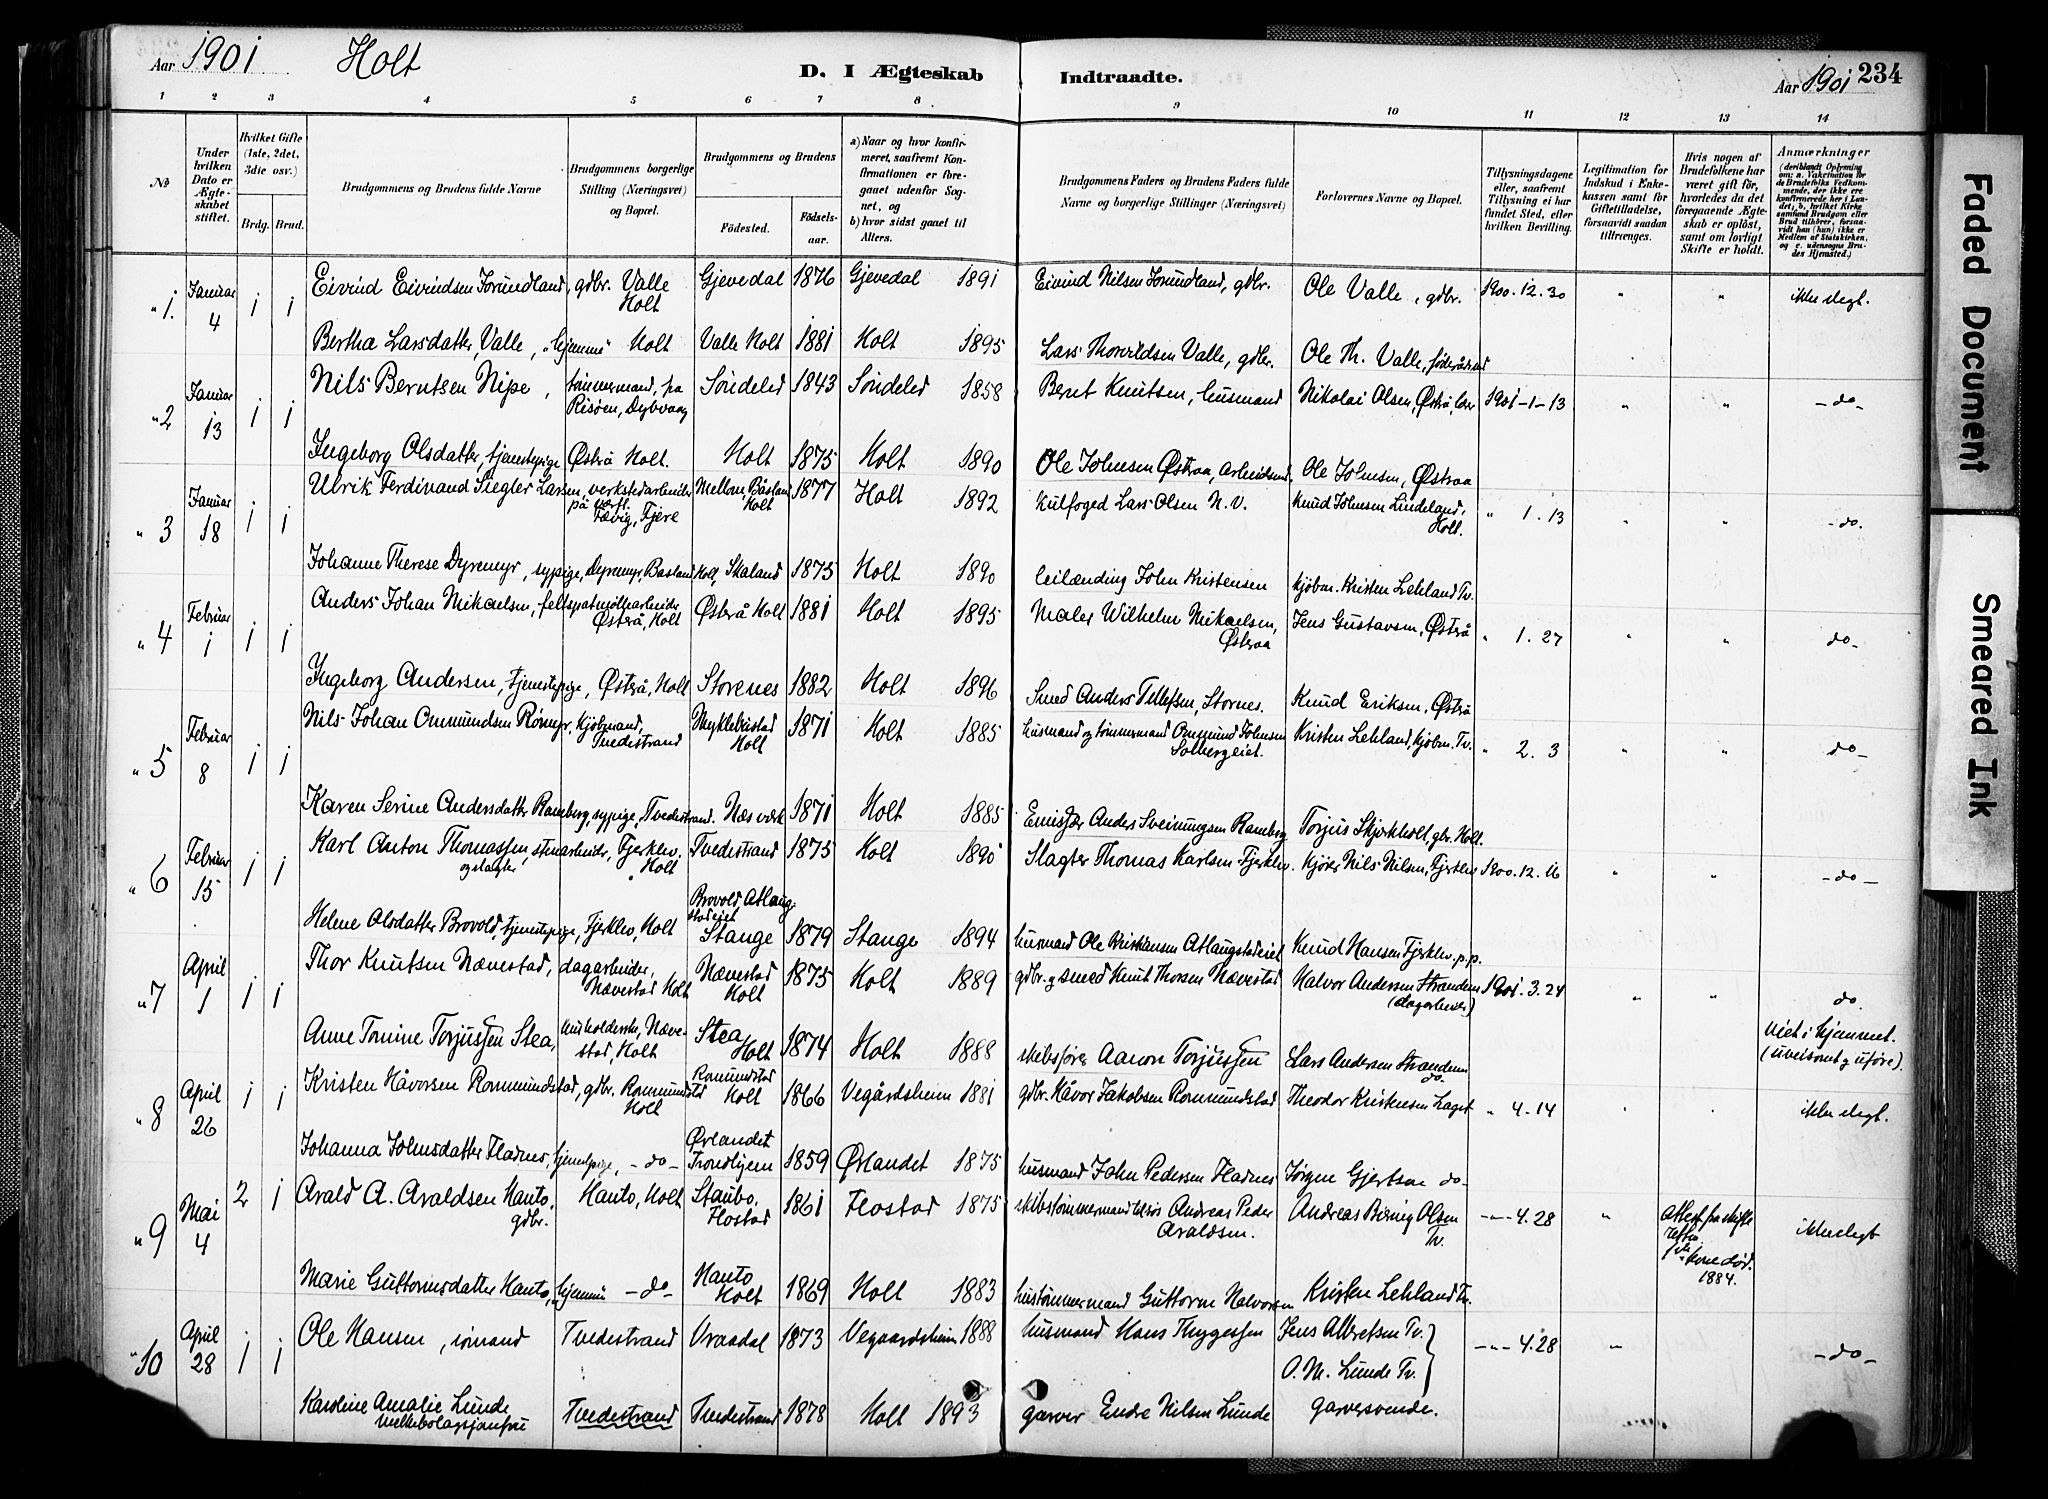 Aar 1901 Holt D. I Ægteskab Indtraadte. Aar 1901 234
1 2 3 4 5 6 7 8 9 10 11 12 13 14
№
Under hvilken Dato er Ægteskabet stiftet.
Hvilket Gifte (1ste, 2det, 3die osv.)
Brdg. Brud.
Brudgommens og Brudens fulde Navne
Brudgommens borgerlige Stilling (Næringsvei) og Bopæl.
Brudgommens og Brudens
Fødested.
Fødselsaar.
a) Naar og hvor konfirmeret, saafremt Konfirmationen er foregaaet udenfor Sognet, og
b) hvor sidst gaaet til Alters.
Brudgommens Faders og Brudens Faders fulde Navne og borgerlige Stillinger (Næringsvei)
Forlovernes Navne og Bopæl.
Tillysningsdagene eller, saafremt Tillysning ei har fundet Sted, efter hvilken Bevilling.
Legitimation for Indskud i Enkekassen samt for Giftetilladelse, forsaavidt saadan tiltrænges.
Hvis nogen af Brudefolkene har været gift før, hvorledes da det foregaaende Ægteskab er opløst, samt om lovligt Skifte er holdt.
Anmærkninger
(deriblandt Oplysning om: a. Vakcination for de Brudefolks Vedkommende, der ikke ere konfirmerede her i Landet; b. hvilket Kirkesamfund Brudgom eller Brud tilhører, forsaavidt han (hun) ikke er Medlem af Statskirken, og c. udensogns Brudes Hjemsted.)
"1. Januar 4 1 1 Eivind Eivindsen Jorundland, gdbr. Valle Holt Gjevedal 1876 Gjevedal 1891 Eivind Nilsen Jorundland, gdbr. Ole Valle, gdbr. 1900.12.30 " " ikke slegt.
Bertha Larsdatter Valle, hjemme Holt Valle Holt 1881 Holt 1895 Lars Thorvildsen Valle, gdbr. Ole Th. Valle, føderådsmd
"2 Januar 13 1 1 Nils Berntsen Nipe, tømmermand, på Risøen, Dybvaag Søndeled 1843 Søndeled 1858 Bernt Knutsen, husmand Nikolai Olsen, Østrå, 1901-1-13 " " -do-
Ingeborg Olsdatter, tjenestepige Østrå Holt. Holt 1875 Holt 1890 Ole Johnsen Østraa, arbeidsmd. Ole Johnsen, Østraa
"3 Januar 18 1 1 Ulrik Ferdinand Siegler Larsen, verkstedarbeider på værft. Fævig, Fjere Mellom Båsland Holt 1877 Holt 1892 kulfoged Lars Olsen N. V. Knud Johnsen Lindeland, Holt. " 1.13 " " -do.
Johanne Therese Dyremyr, sypige, Dyremyr, Basland Holt, Skaland 1875 Holt 1890 leilænding John Kristensen kjøbm. Kristen Lehland Tv.
"4 Februar 1 1 1 Anders Johan Mikaelsen, feltspatmøllearbeider Østrå, Holt Østrå Holt 1881 Holt 1895 Maler Wilhelm Mikaelsen, Østraa Jens Gustavsen, Østrå " 1.27 " " do-
Ingeborg Andersen, tjenestepige, Østrå, Holt Storenes 1882 Holt 1896 Smed Anders Tellefsen, Stornes. Knud Eriksen, Østrå
"5 Februar 8 1 1 Nils Johan Ommundsen Rømyr, kjøbmand, Tvedestrand Myklebustad Holt 1871 Holt 1885 husmand og tømmermand Ommund Johnsen Solbergeiet. Kristen Lehland, kjøbm. Tv. " 2.3 " " do-
Karen Serine Andersdatter Ramberg, sypige, Tvedestrand. Næs værk 1871 Holt 1885 Emissær Anders Sveinungsen Ramberg Torjus Skjerkholt, gbr. Holt.
"6 Februar 15 1 1 Karl Anton Thomassen, stenarbeider, og slagter Fjerklev. Holt Tvedestrand 1875 Holt 1890 Slagter Thomas Karlsen Fjerklev. kjører Nils Nilsen, Fjerklev 1900.12.16 " " -do-
Helene Olsdatter Brovold, tjenestepige, Fjerklev, Holt Brovold Atlungstadeiet Stange 1879 Stange 1894 husmand Ole Kristiansen Atlaugstadeiet Knud Hansen Fjerklev. p.p.
"7 April 1 1 1 Thor Knutsen Nævestad, dagarbeider, Nævestad Holt Nævestad Holt 1875 Holt 1889 gdbr. og smed Knut Thorsen Nævestad Halvor Andersen Stranden (dagarbeider) 1901.3.24 " " do.
Anne Tomine Torjussen Stea, husholderske, Nævestad, Holt Stea Holt 1874 Holt 1888 skibsfører Aanon Torjussen Lars Andersen Stranden do. Viet i hjemmet. (uveisomt og uføre).
"8 April 26 1 1 Kristen Håvorsen Rommundstad, gdbr. Rommundstd Holt Romundstad Holt 1866 Vegårdsheim 1881 gdbr. Håvor Jakobsen Rommundstad Theodor Kristensen Laget " 4.14 " " ikke slegt.
Johanna Johnsdatter Fladnes, tjenestpige, -do- Ørlandet Trondhjem 1859 Ørlandet 1875 husmand John Pedersen Fladnes Jørgen Gjertsen do-
"9 Mai 4 2 1 Arald A. Araldsen Hanto, gdbr. Hanto, Holt Staubo, Flostad 1861 Flostad 1875 skibstømmermand Andreas Peder Araldsen. Andreas Berning Olsen Tv. -"-4.28 " attest fra skifteretten kone død. 1884. ikke slegt
Marie Guttormsdatter Hanto, hjemme -do- Hanto Holt 1869 Holt 1883 hustømmermand Guttorm Halvorsen Kristen Lehland Tv.
"10 April 28 1 1 Ole Hansen, sømand Tvedestrand Vraadal 1873 Vegaardsheim 1888 husmand Hans Thygessen Jens Albretsen Tv. -"-4.28 " -do-
O. N. Lunde Tv.
Karoline Amalie Lunde Tvedestrand Tvedestrand 1878 Holt 1893 garver Endre Nilsen Lunde garversvende.
Faded Document
Smeared Ink